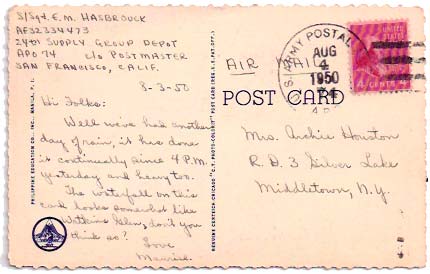 S/Sgt. E.M. HASBROUCK
AF32334473
24th SUPPLY GROUP DEPOT
APO 74 c/o POSTMASTER
SAN FRANCISCO, CALIF.
8-3-50
Hi Folks:
Well we've had another
day of rain, it has done
it continually since 4 P.M.
yesterday and heavy too.
The waterfall on this
card looks somewhat like
Watkins Glen, don't you
think so?
Love
Maurice.
PHILIPPINE EDUCATION CO., INC. MANILA, P. I.
GENUINE CURTEICH-CHICAGO "C.T. PHOTO-COLORIT" POST CARD (REG. U.S. PAT. OFF.)
AIR MAIL
POST CARD
U.S. ARMY POSTAL
AUG
4
1950
74
UNITED
STATES
CENTS
Mrs. Archie Houston
R. D. 3 Silver Lake
Middletown, N.Y.